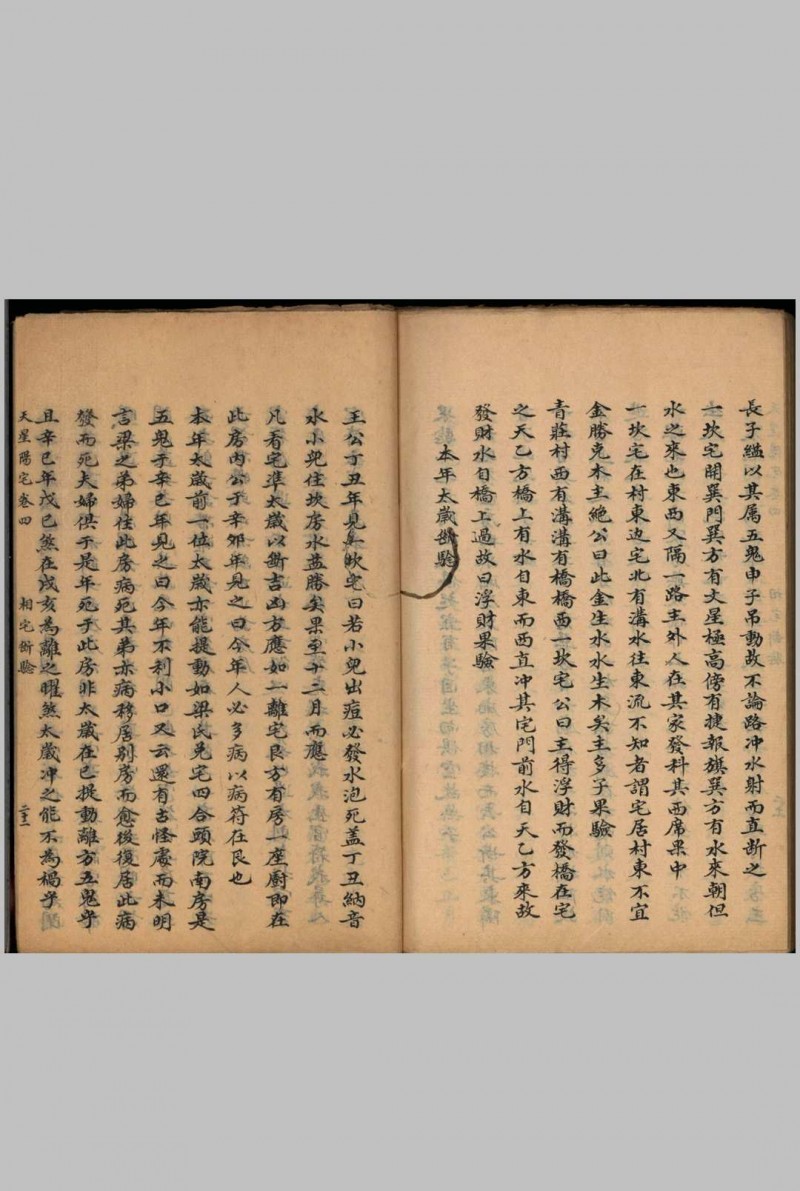 長子縊以其属五鬼申子吊動故不論路冲水射而直断之
一坎宅開巽門巽方有文星極高傍有捷報旗巽方有水來朝但
水之來也東西又隔一路主外人在其家發科其西席果中
一坎宅在村東边宅北有溝水往東流不知者謂宅居村東不宜
金勝克木主絶公曰此金生水水生木矣主多子果驗
青莊村西有溝溝有橋橋西一坎宅公曰主得浮財而發橋在宅
之天乙方橋上有水自東而西直冲其宅門前水自天乙方來故
發財水自橋上過故曰浮財果驗
本年太歲断驗
王公丁丑年見一坎宅曰若小兒出痘必發水泡死盖丁丑納音
水小兒住坎房水益勝矣果至十二月而應
凡看宅準太歲以断吉凶方應如一離宅艮方有房一座厨即在
此房内公于辛卯年見之曰今年人必多病以病符在艮也
本年太歲前一位太歲亦能提動如梁氏兑宅四合頭院南房是
五鬼于辛巳年見之曰今年不利小口又云還有古怪處而未明
言梁之弟婦住此房病死其弟亦病移居別房而愈後復居此病
發而死夫婦俱于是年死于此房非太歲在巳提動離方五鬼乎
且辛巳年戊巳煞在戌亥為離之曜煞太歲冲之能不為禍乎
天星陽宅卷四 相宅断驗 二十二